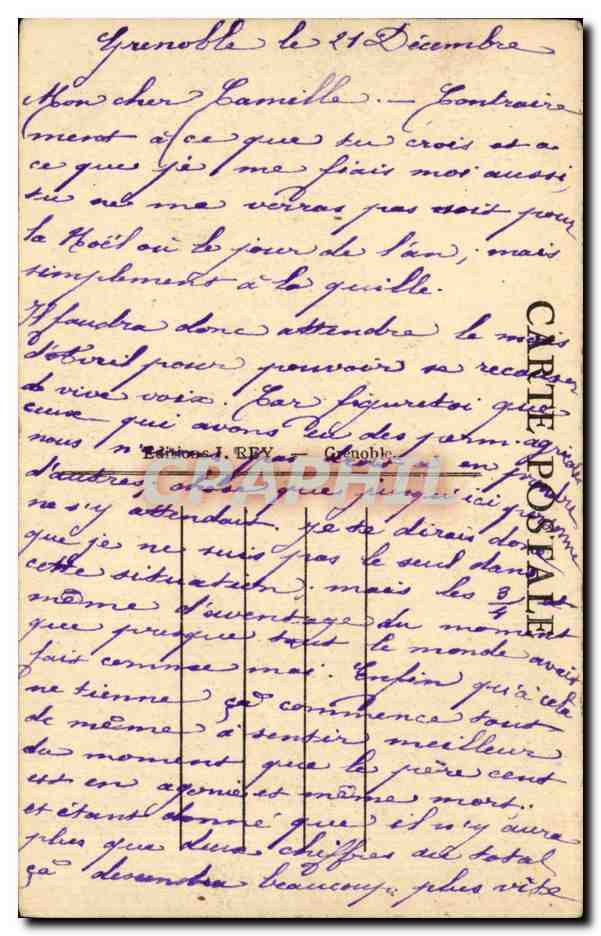 Grenoble le 21 Décembre
Mon cher Camille. — Contraire
ment à ce que tu crois et a
ce que je me fiais moi aussi,
tu ne me verras pas soit pour
la Noël où le jour de l'an, mais
simplement à la quille.
Il faudra donc attendre le mois
d'Avril pour pouvoir se recauser
de vive voix. Car figure toi que
ceux qui avons eu des perm. agricoles
nous n'avons pas droit à en prendre
d'autres, chose que jusqu'ici personne
ne s'y attendait. Je te dirais donc
que je ne suis pas le seul dans
cette situation, mais les 3/4 et
même d'aventage du moment
que presque tout le monde avait
fait comme moi. Enfin qu'à cela
ne tienne ça commence tout
de même à sentir meilleur
du moment que le père cent
est en agonie et même mort.
et étant donné que il n'y aura
plus que deux chiffres au total
ça descendra beaucoup plus vite
CARTE POSTALE
Editions J. REY. — Grenoble.
CRAPHIL